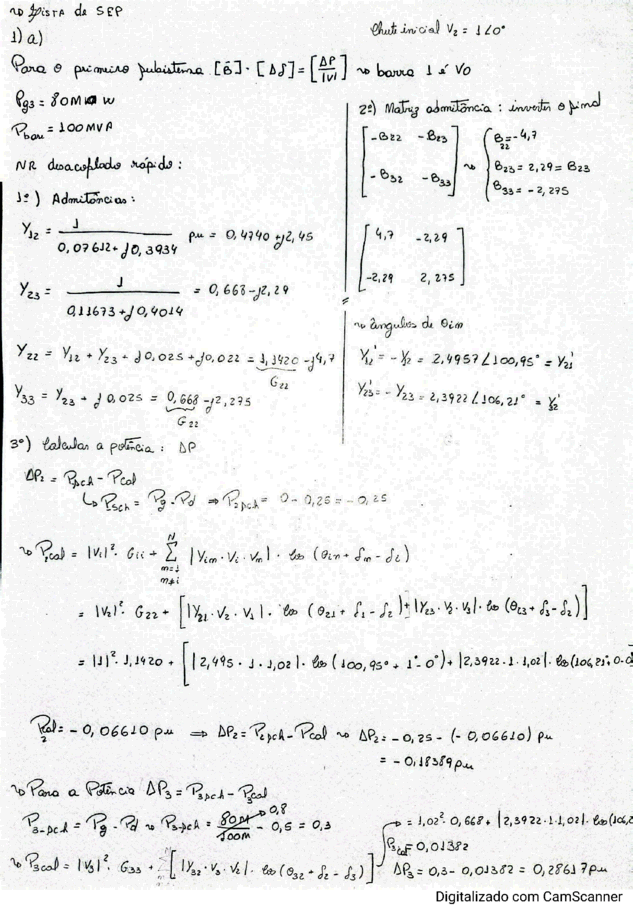 ↝ Lista de SEP
1) a)
Chute inicial V₂ = 1∠0°
Para o primeiro subsistema [B]·[Δδ] = [ΔP/|V|] ↝ barra 1 é VΘ
Pg3 = 80M w
Pbase = 100MVA
NR desacoplado rápido:
1º) Admitâncias:
Y12 = 1 / (0,07612 + j0,3934) pu = 0,4740 + j2,45
Y23 = 1 / (0,11673 + j0,4014) = 0,668 - j2,29
Y22 = Y12 + Y23 + j0,025 + j0,022 = 1,1420 - j4,7
G22
Y33 = Y23 + j0,025 = 0,668 - j2,275
G22
2º) Matriz admitância: inverter o sinal
[-B22 -B23
-B32 -B33] ↝ { B22 = -4,7
B23 = 2,29 = B23
B33 = -2,275
[4,7 -2,29
-2,29 2,275]
↝ ângulos de θim
Y12' = -Y2 = 2,4957∠100,95° = Y21'
Y23' = -Y23 = 2,3922∠106,21° = Y32'
3º) Calcular a potência: ΔP
ΔP2 = Psch - Pcal
↳ Psch = Pg - Pd ⇒ P2sch = 0 - 0,25 = -0,25
↝ Pical = |Vi|² · Gii + Σ (m=1, m≠i; N) |Yim · Vi · Vm| · cos (θim + δm - δi)
= |V2|² · G22 + [|Y21 · V2 · V1| · cos (θ21 + δ1 - δ2) + |Y23 · V2 · V3| · cos (θ23 + δ3 - δ2)]
= |1|² · 1,1420 + [|2,495 · 1 · 1,02| · cos (100,95° + 1° - 0°) + |2,3922 · 1 · 1,02| · cos (106,21° + 0-0
P2cal = -0,06610 pu ⇒ ΔP2 = P2sch - Pcal ↝ ΔP2 = -0,25 - (-0,06610) pu
= -0,18389 pu
↝ Para a Potência ΔP3 = P3sch - P3cal
P3-sch = Pg - Pd ↝ P3-sch = 80M/100M 0,8 - 0,5 = 0,3
↝ P3cal = |V3|² · G33 + [|Y32 · V3 · V2| · cos (θ32 + δ2 - δ3)]
= 1,02² · 0,668 + |2,3922 · 1 · 1,02| · cos (106,2
P3cal = 0,01382
ΔP3 = 0,3 - 0,01382 = 0,28617 pu
Digitalizado com CamScanner